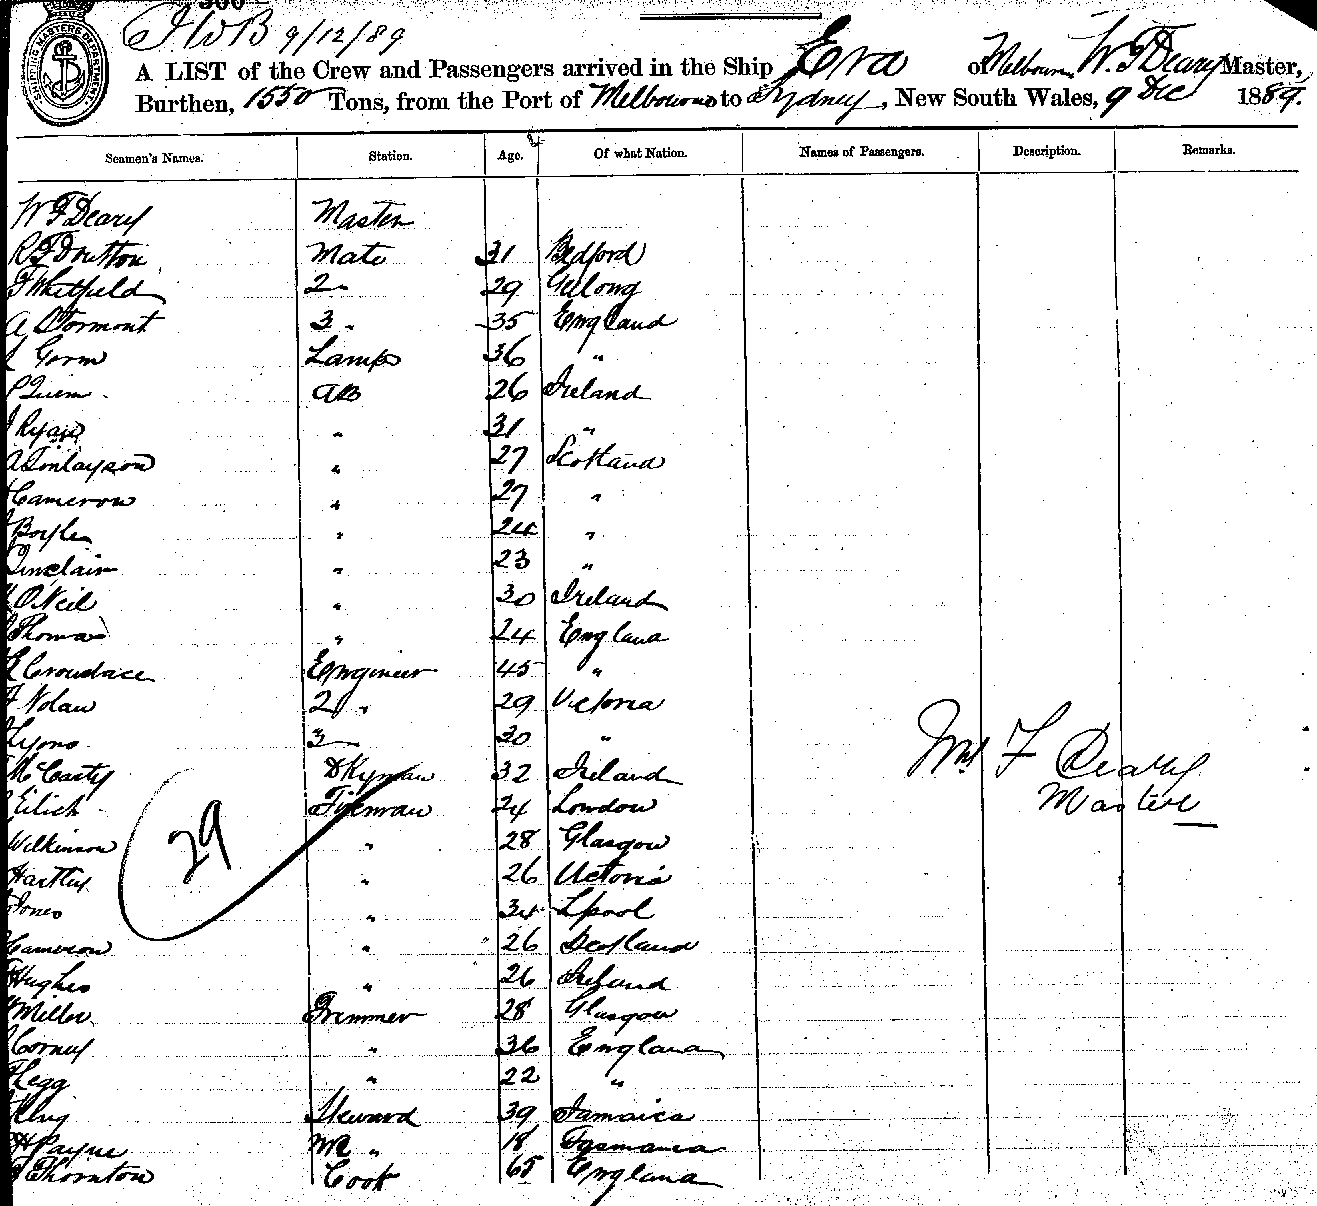 9/12/89
SHIPPING MASTERS DEPARTMENT
A LIST of the Crew and Passengers arrived in the Ship Era of Melbourne, W. F. Deary Master,
Burthen, 1550 Tons, from the Port of Melbourne to Sydney, New South Wales, 9 Dec 1889.
Seamen's Names. Station. Age. Of what Nation. Names of Passengers. Description. Remarks.
W F Deary Master
Mate 31 Bedford
F Whitfield 2 29 Geelong
A 3 " 35 England
Gorm Lamps 36 "
P Quem AB 26 Ireland
J Ryan " 31 "
A Finlayson " 27 Scotland
Cameron " 27 "
Boyle " 24 "
Sinclair " 23 "
O'Neil " 30 Ireland
Thomas " 24 England
Croudace Engineer 45 "
Nolan 2 " 29 Victoria
Lyons 3 30 "
McCarty Dkyman 32 Ireland
Eilich Fireman 24 London
Wilkinson " 28 Glasgow
Hartley " 26 Victoria
Jones " 34 Lpool
Cameron " 26 Scotland
Hughes " 26 Ireland
Miller Trimmer 28 Glasgow
Corney " 36 England
Legg " 22 "
King Steward 39 Jamaica
H Payne " 18 Tasmania
Thornton Cook 65 England
29
Wm F Deary
Master